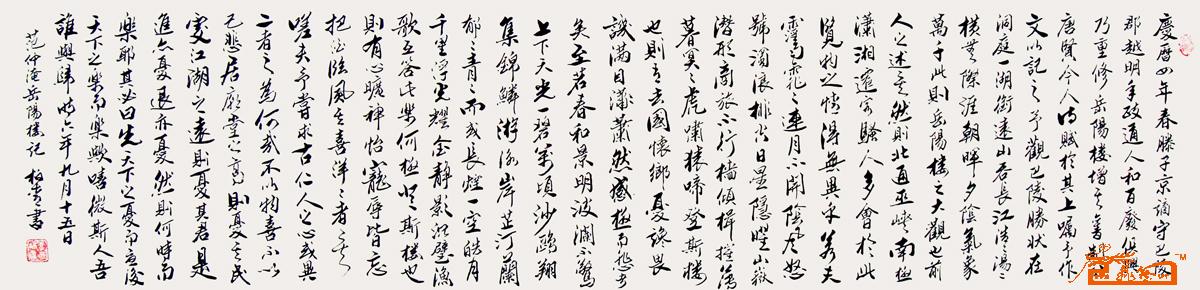 慶曆四年春滕子京謫守巴陵
郡越明年政通人和百廢俱興
乃重修岳陽樓增其舊制
唐賢今人詩賦於其上囑予作
文以記之予觀巴陵勝狀在
洞庭一湖銜遠山吞長江浩浩湯湯
橫無際涯朝暉夕陰氣象
萬千此則岳陽樓之大觀也前
人之述矣然則北通巫峽南極
瀟湘遷客騷人多會於此
覽物之情得無異乎若夫
霪雨霏霏連月不開陰風怒
號濁浪排空日星隱曜山嶽
潛形商旅不行檣傾楫摧薄
暮冥冥虎嘯猿啼登斯樓
也則有去國懷鄉憂讒畏
譏滿目蕭然感極而悲者
矣至若春和景明波瀾不驚
上下天光一碧萬頃沙鷗翔
集錦鱗游泳岸芷汀蘭
郁郁青青而或長煙一空皓月
千里浮光耀金靜影沉璧漁
歌互答此樂何極登斯樓也
則有心曠神怡寵辱皆忘
把酒臨風其喜洋洋者矣
嗟夫予嘗求古仁人之心或異
二者之為何哉不以物喜不以
己悲居廟堂之高則憂其民
處江湖之遠則憂其君是
進亦憂退亦憂然則何時而
樂耶其必曰先天下之憂而憂後
天下之樂而樂歟噫微斯人吾
誰與歸時六年九月十五日
范仲淹岳陽樓記 書